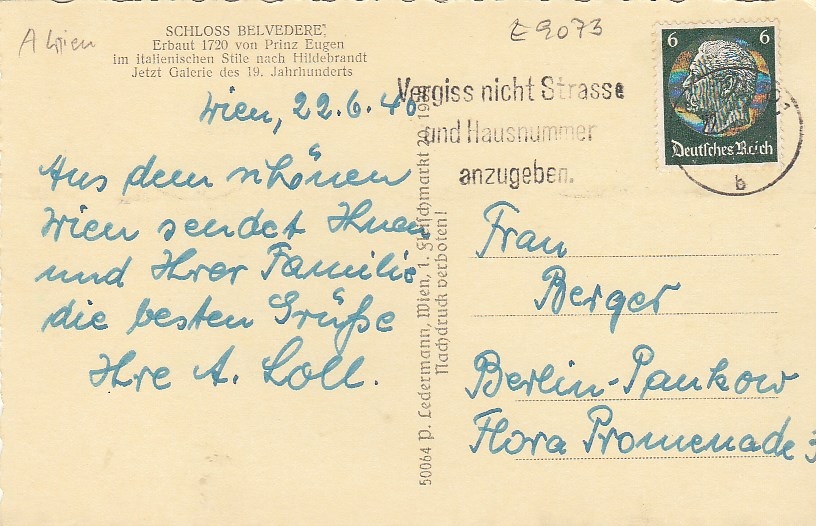 A Wien
SCHLOSS BELVEDERE,
Erbaut 1720 von Prinz Eugen
im italienischen Stile nach Hildebrandt
Jetzt Galerie des 19. Jahrhunderts
E 9073
6 6
Deutsches Reich
Vergiss nicht Strasse
und Hausnummer
anzugeben.
b
Wien, 22.6.40
Aus dem schönen
Wien sendet Ihnen
und Ihrer Familie
die besten Grüße
Ihre A. Loll.
50064 P. Ledermann, Wien, 1. Fleischmarkt 20,
Nachdruck verboten!
Frau
Berger
Berlin-Pankow
Flora Promenade